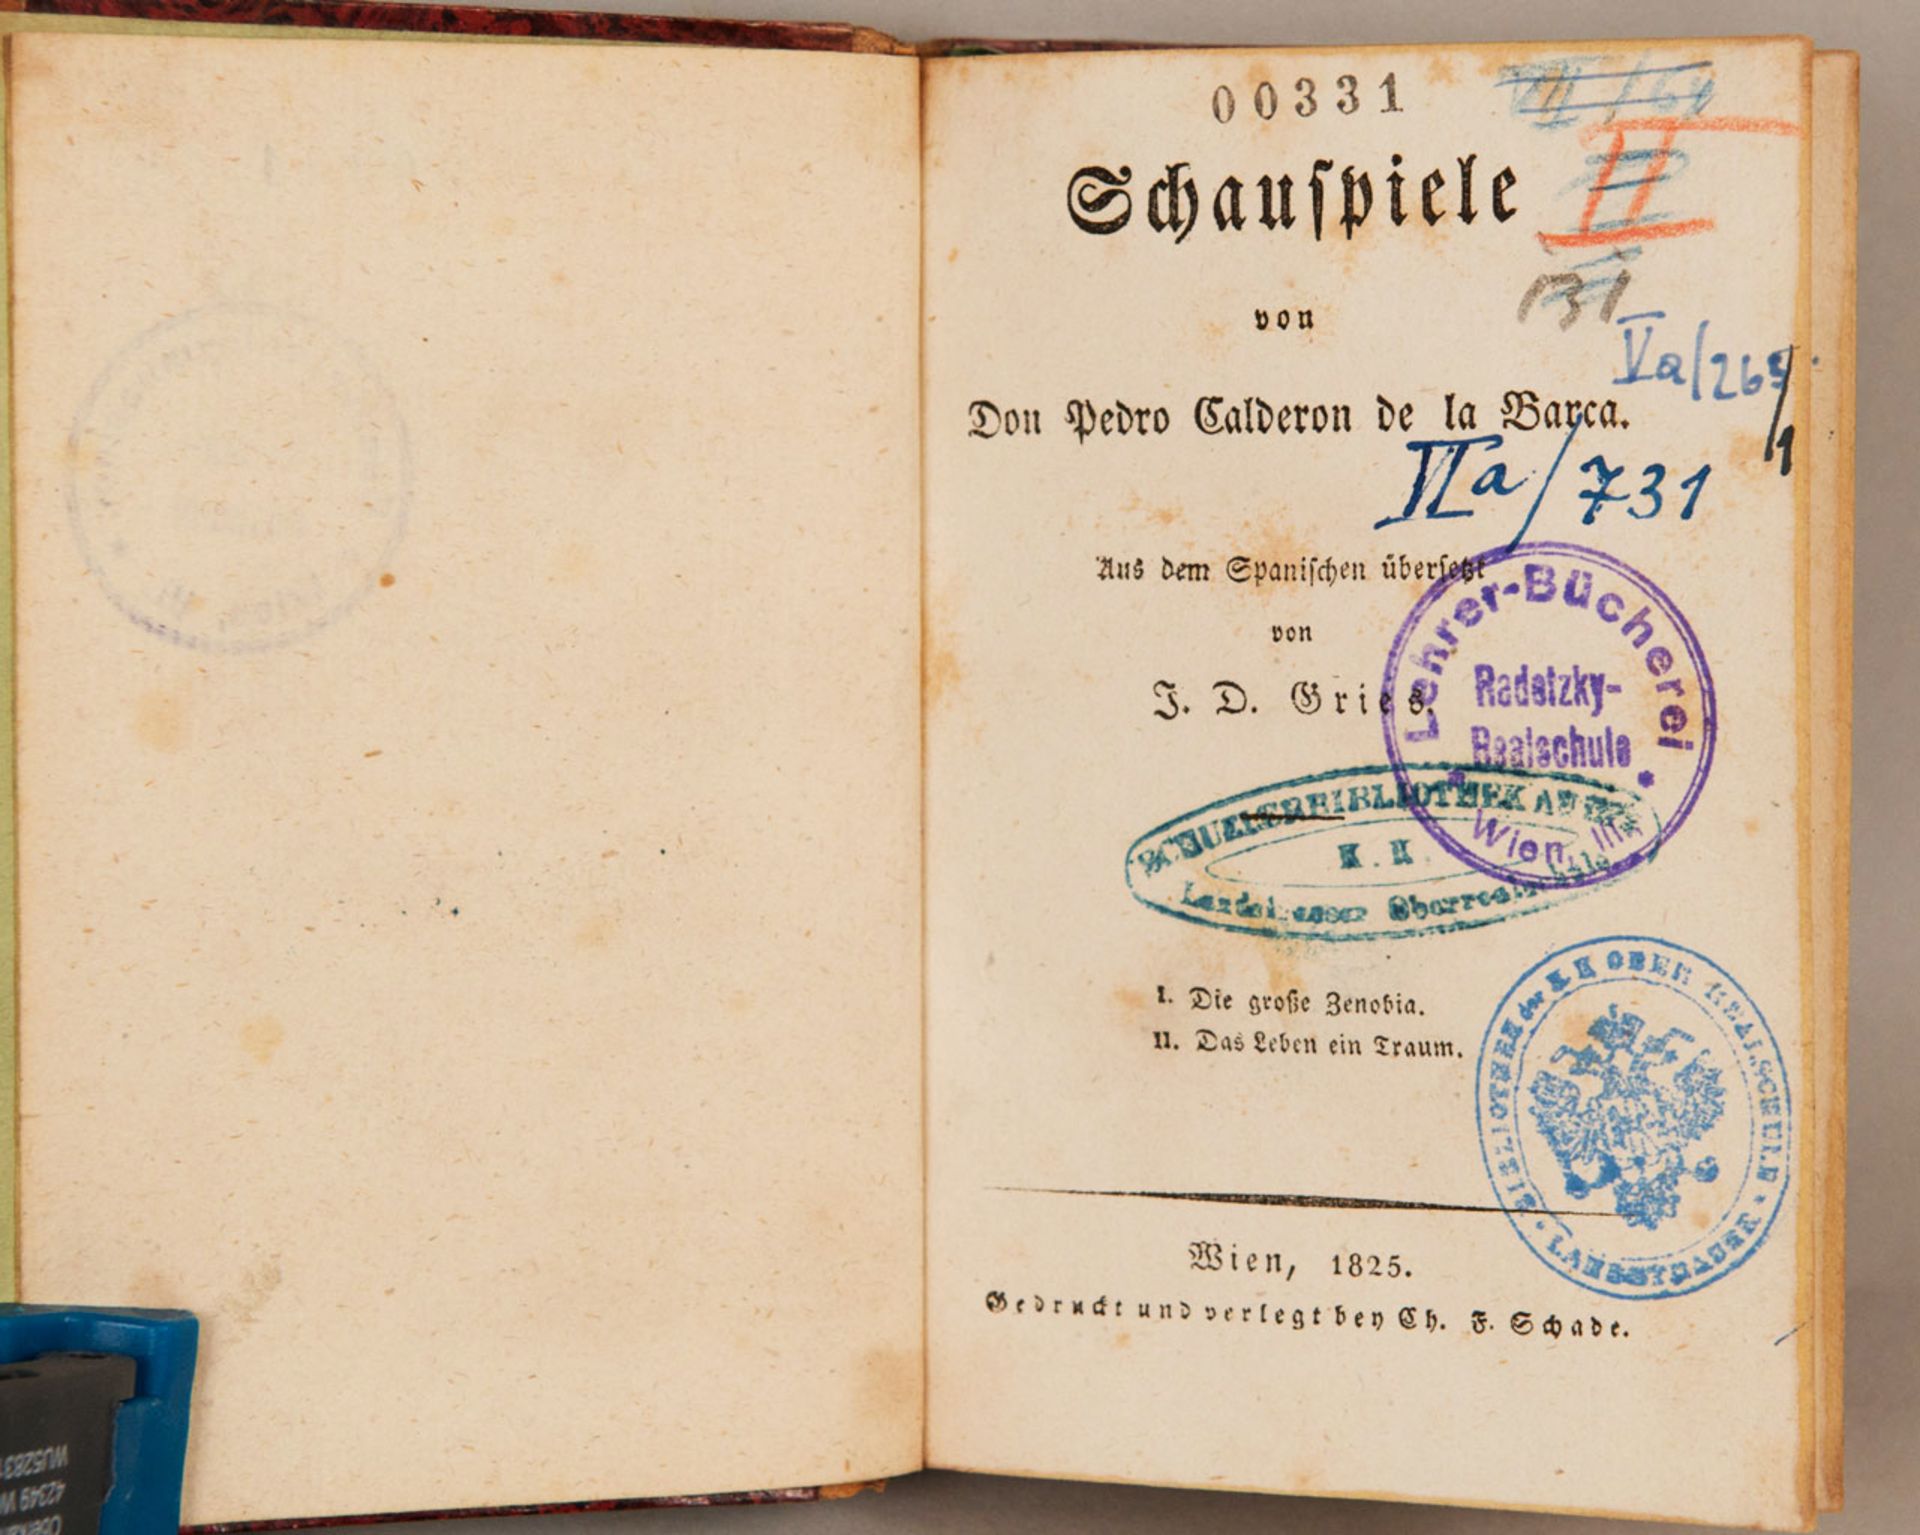 00331
Schauſpiele
II
131
von
Va/265/1
Don Pedro Calderon de la Barca.
VIa/731
Aus dem Spaniſchen überſetzt
von
J. D. Gries.
Lehrer-Bücherei
Radetzky-
Realschule
Wien, III.
SCHUELERBIBLIOTHEK AN DER
K. K.
Landstrasser Oberrealschule
I. Die große Zenobia.
II. Das Leben ein Traum.
BIBLIOTHEK der K K OBER REALSCHULE
LANDSTRASSE
Wien, 1825.
Gedruckt und verlegt bey Ch. F. Schade.
42349